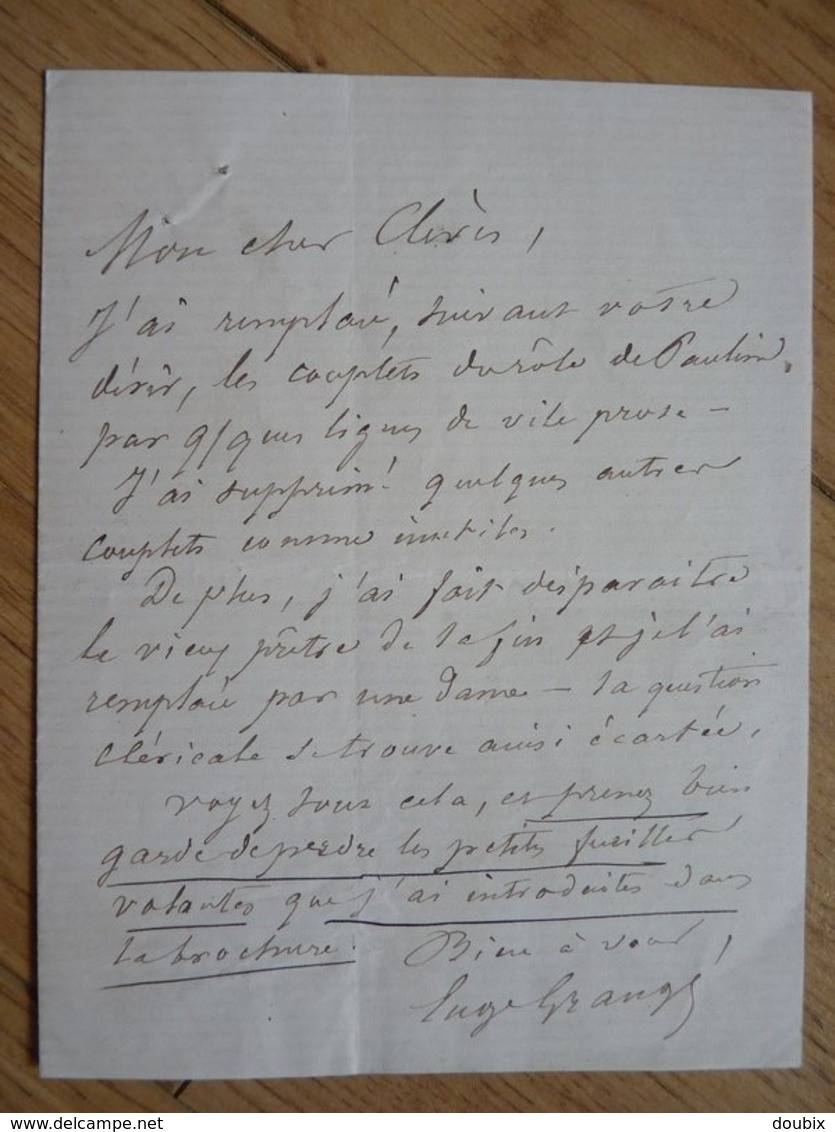 Mon cher Clèves,
J'ai remplacé, suivant votre
désir, les couplets du rôle de Paulin,
par q/ques lignes de vile prose –
J'ai supprimé quelques autres
couplets comme inutiles.
De plus, j'ai fait disparaitre
le vieux prêtre de la fin et je l'ai
remplacé par une dame – la question
cléricale se trouve ainsi écartée.
Voyez tous cela, et prenez bien
garde de perdre les petites feuilles
volantes que j'ai introduites dans
la brochure.
Bien à vous,
Eug. Grangé
delcampe.net
doubix